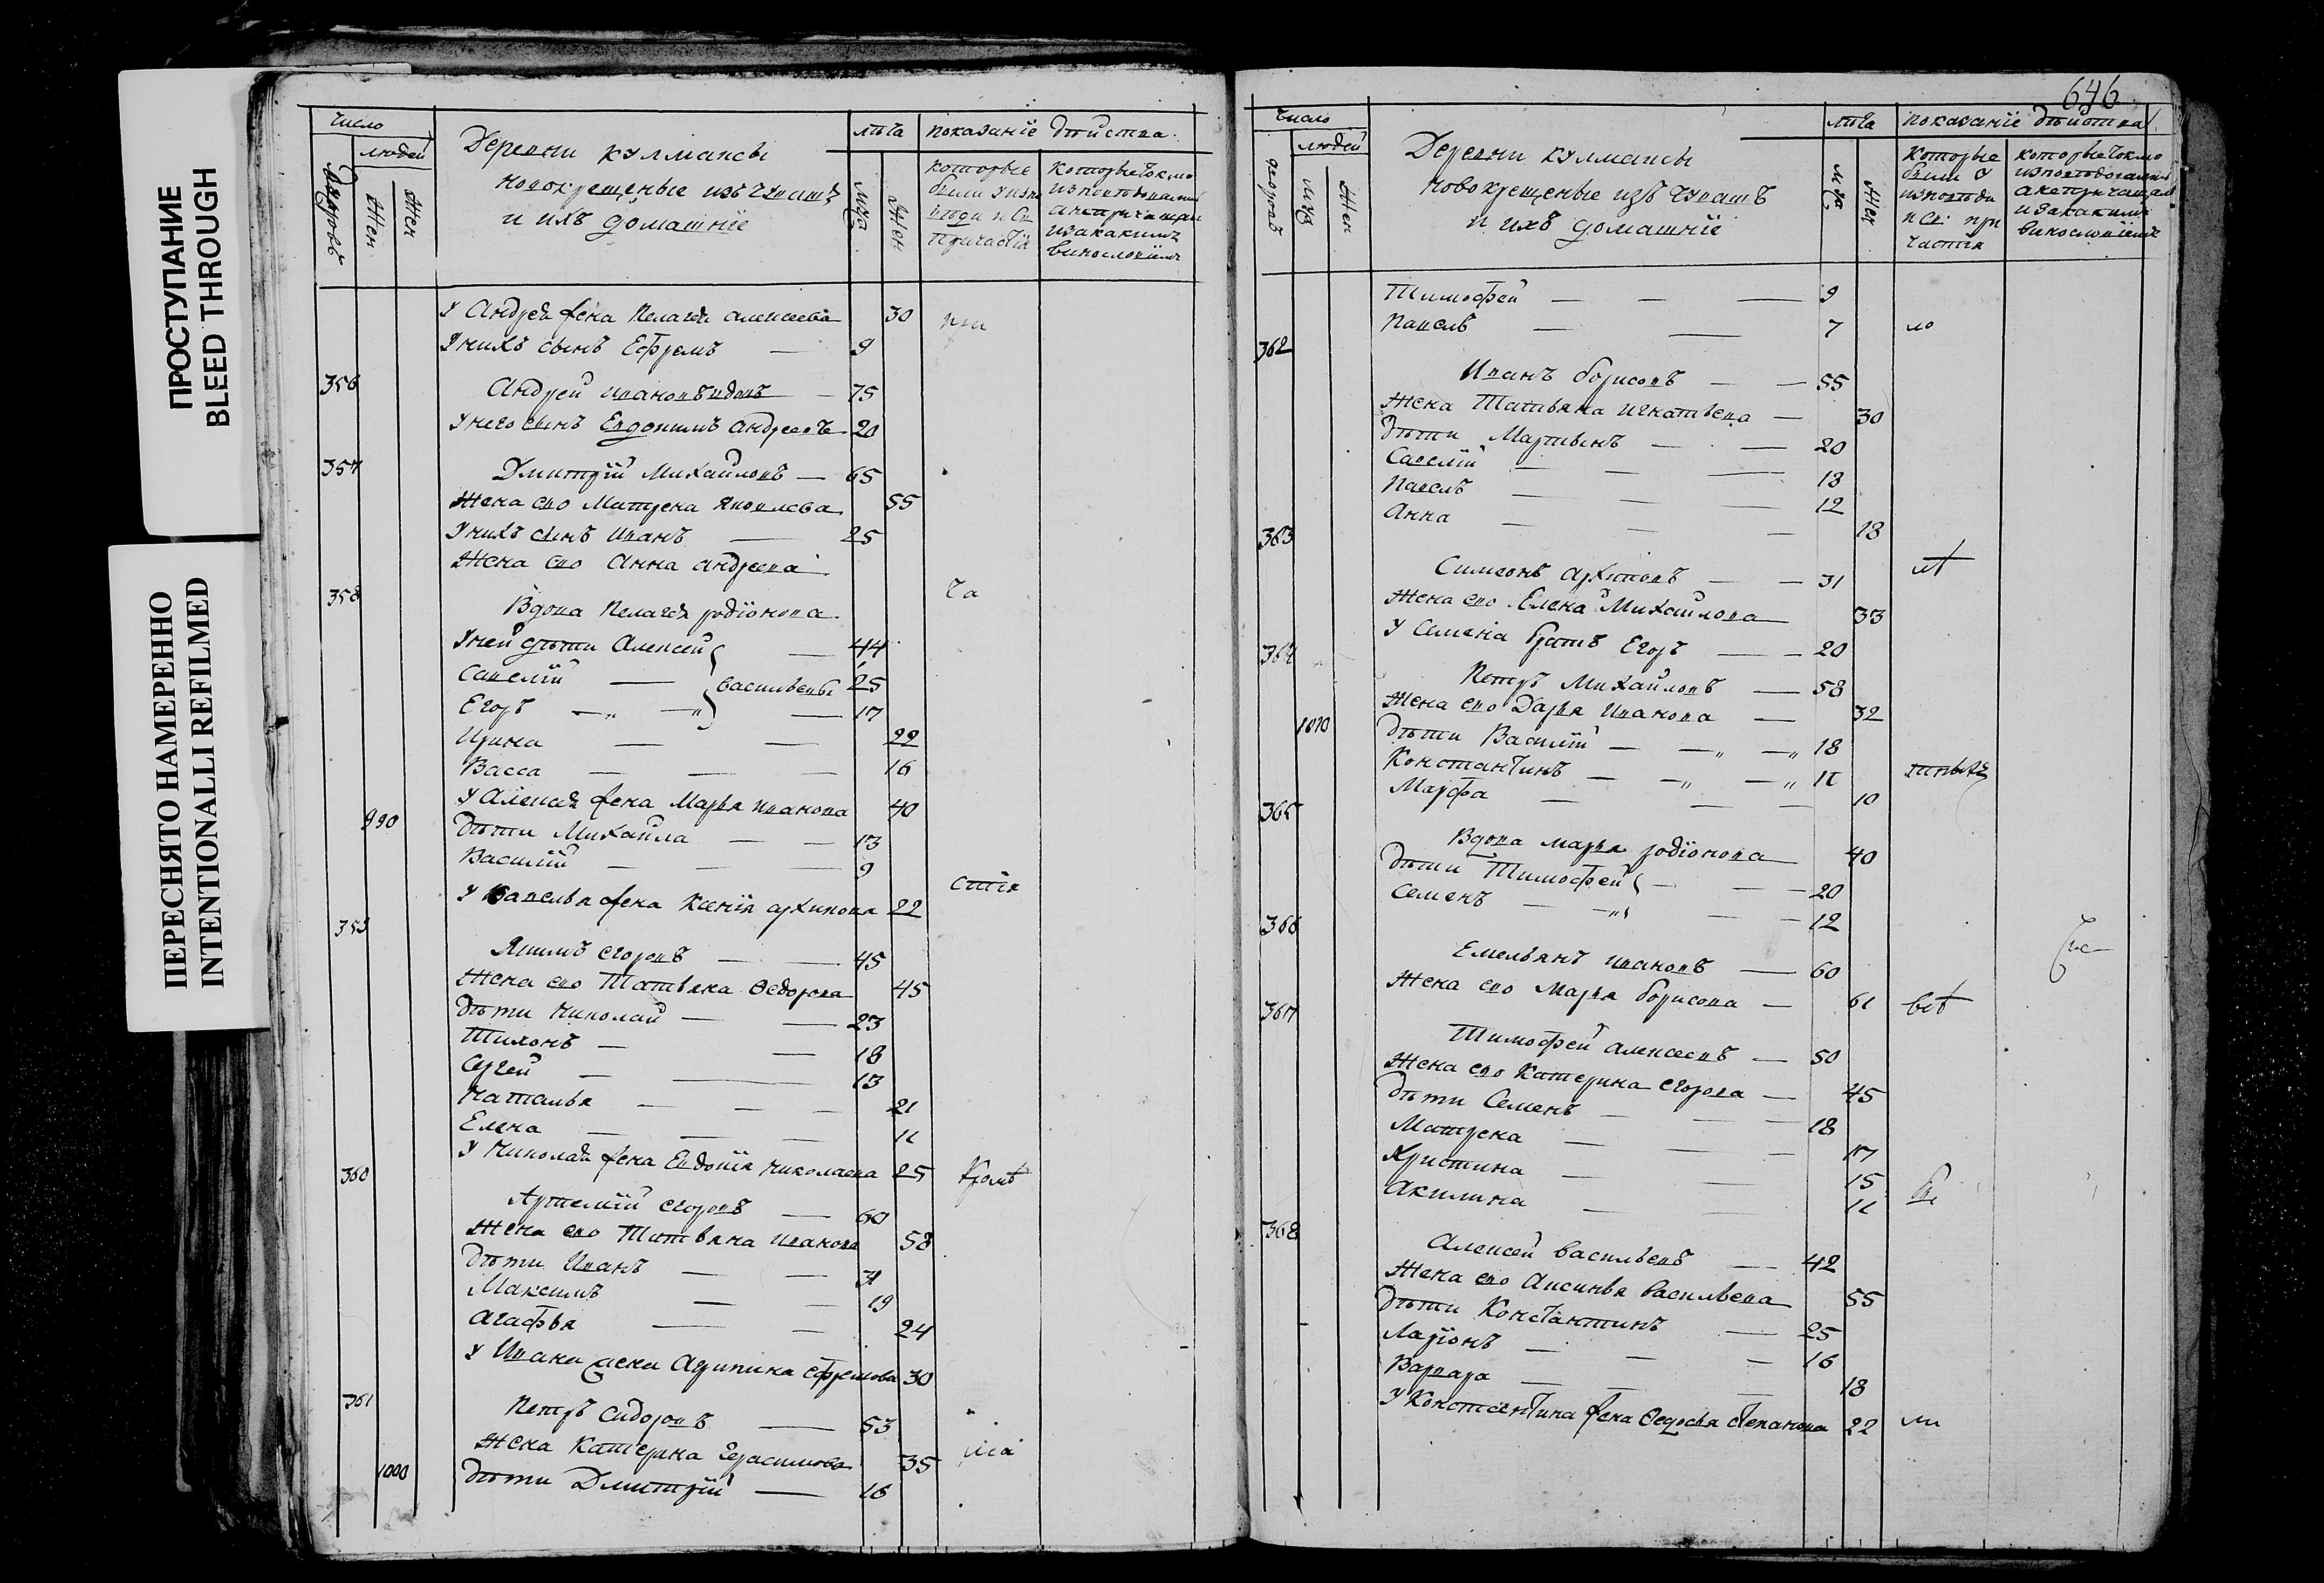 ПРОСТУПАНИЕ
BLEED THROUGH
ПЕРЕСНЯТО НАМЕРЕННО
INTENTIONALLI REFILMED
Число
людей
дворовъ
Жен
Жен
Деревни кулмаксы
новокрещеные изъ чувашъ
и ихъ домашніе
лѣта
муж
Жен
показаніе действа
которые были у испо вѣди и Св причастія
которые токмо исповѣдовались а непричащал и закакимъ винословіемъ
У Андрея жена Пелагея алексеева 30 при
У нихъ сынъ Ефремъ — 9
356
Андрей ивановъ вдовъ — 75
У него сынъ Евдокимъ андреевъ 20
357
Дмитрій Михайловъ — 65
Жена ево Матрена Яковлева 55
У нихъ сынъ Иванъ — 25
Жена ево Анна андреева
358 ча
Вдова Пелагея родіонова
У ней дѣти Алексей — 44
Савелій — васильевы 25
Егоръ — „ — „ — 17
Ирина — — 22
Васса — — — 16
У Алексея жена Марья иванова 40
990
дѣти Михайла — — 13
Василій — — — 9
стія
У Савелья жена Ксенія архипова 22
359
Якимъ егоровъ — — 45
Жена ево Татьяна Ѳедорова 45
Дѣти Николай — — 23
Тихонъ — — 18
Сергей — — 13
Наталья — — — 21
Елена — — — 11
У Николая жена Евдокія николаева 25
360 Кромѣ
Артемій егоровъ — 60
Жена ево Татьяна иванова 58
Дѣти Иванъ — —
Максимъ — — 19
Агафья — — 24
У Ивана жена Акулина ефремова 30
361
Петръ сидоровъ — 53
Жена Катерина Герасимова 35
1000
дѣти Дмитрій — 16
646
Число
людей
дворовъ
муж
Жен
Деревни кулмаксы
новокрещеные изъ чувашъ
и ихъ домашніе
лѣта
муж
Жен
показаніе действа
Которые были у исповѣди и св: при частія
которые токмо исповѣдовались а непричащал и закакимъ винословіемъ
Тимофей — — — 9
Павелъ — — 7 ло
362
Иванъ борисовъ — — 55
Жена Татьяна игнатьева — 30
дѣти Мартынъ — — 20
Савелій — — — 13
Павелъ — — — 12
Анна — — — 18
363 лѣ
Симеонъ архиповъ — — 31
Жена ево Елена Михайлова 33
У Семена братъ Егоръ — — 20
364
Петръ Михайловъ — 58
Жена ево Дарья Иванова — 32
1010
дѣти Василій — — „ — „ 18
Константинъ — — „ — „ 11
Марфа — — — 10
365
Вдова марья родіонова 40
дѣти Тимофей — — — 20
Семенъ — — „ — — 12
366
Емельянъ ивановъ — 60
Жена ево Марья борисова — 61
367
Тимофей алексеевъ — 50
Жена ево Катерина егорова — 45
дѣти Семенъ — — — 18
Матрена — — — 17
Христина — — 15
Акилина — — 11
368
Алексей васильевъ — 42
Жена ево Аксинья васильева 55
дѣти Константинъ — 25
Ларіонъ — — — 16
Варвара — — — 18
У Константина жена Ѳедосья степанова 22